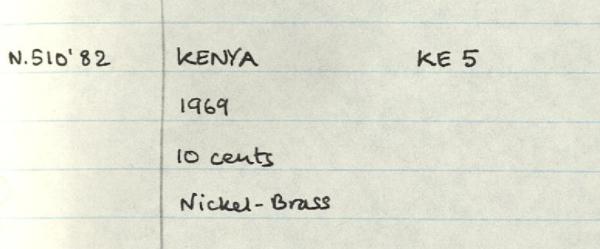 N.510'82 KENYA KE 5
1969
10 cents
Nickel-Brass